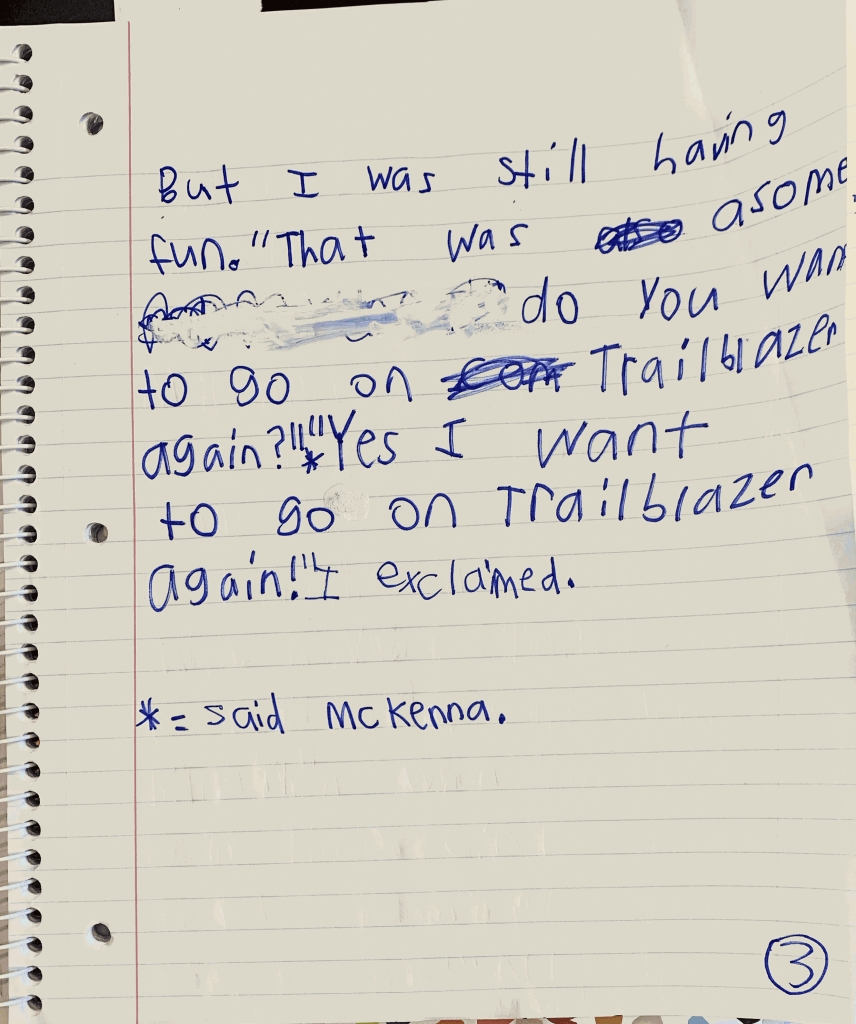 But I was still having
fun. "That was asome
do you want
to go on Trailblazer
again?!" * "Yes I want
to go on Trailblazer
again!" I exclaimed.
* = said McKenna.
3